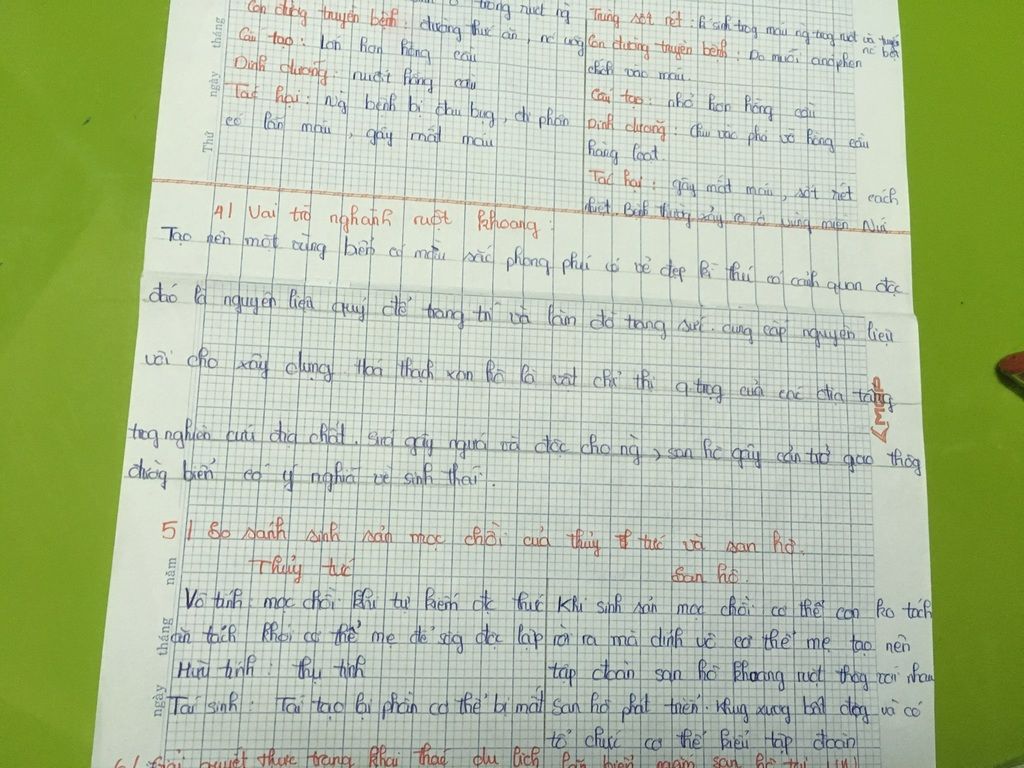 trong ruột ng
Con đường truyền bệnh: đường thức ăn, nc uống
Cấu tạo: Lớn hơn hồng cầu
Dinh dưỡng: nuốt hồng cầu
Tác hại: ng bệnh bị đau bụng, đi phân
có lẫn máu, gây mất máu
Trùng sốt rét: kí sinh trog máu ng trog ruột và tuyến
nc bọt
Con đường truyền bệnh: Do muỗi anôphen
chích vào máu.
Cấu tạo: nhỏ hơn hồng cầu
Dinh dưỡng: chui vào phá vỡ hồng cầu
hàng loạt.
Tác hại: gây mất máu, sốt rét cách
nhật. Bệnh thường xảy ra ở vùng miền Núi
4/ Vai trò nghành ruột khoang:
Tạo nên một vùng biển có màu sắc phong phú có vẻ đẹp kì thú có cảnh quan độc
đáo là nguyên liệu quý để trang trí và làm đồ trang sức. cung cấp nguyên liệu
vôi cho xây dựng Hoá thạch san hô là vật chỉ thị q.trọg của các địa tầng
trog nghiên cứu địa chất. Sứa gây ngứa và độc cho ng, san hô gây cản trở giao thôg
đườg biển có ý nghĩa về sinh thái.
5/ So sánh sinh sản mọc chồi của thủy tức và san hô.
Thủy tức
Vô tính: mọc chồi khi tự kiếm đc thức
ăn tách khỏi cơ thể mẹ để sốg độc lập
Hữu tính: thụ tinh
Tái sinh: Tái tạo lại phần cơ thể bị mất
San hô.
Khi sinh sản mọc chồi cơ thể con ko tách
rời ra mà dính vô cơ thể mẹ tạo nên
tập đoàn san hô khoang ruột thôg với nhau
San hô phát triển. Khug xương bất độg và có
tổ chức cơ thể kiểu tập đoàn
6/ Giải quyết thực trạng khai thác du lịch biển ngắm san hô